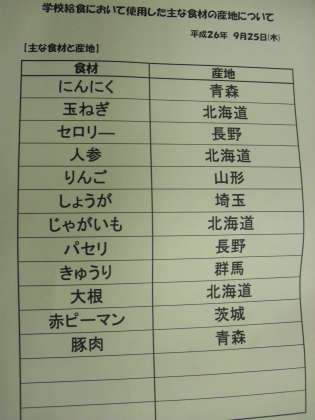 学校給食において使用した主な食材の産地について
平成26年 9月25日(木)
[主な食材と産地]
食材 産地
にんにく 青森
玉ねぎ 北海道
セロリー 長野
人参 北海道
りんご 山形
しょうが 埼玉
じゃがいも 北海道
パセリ 長野
きゅうり 群馬
大根 北海道
赤ピーマン 茨城
豚肉 青森